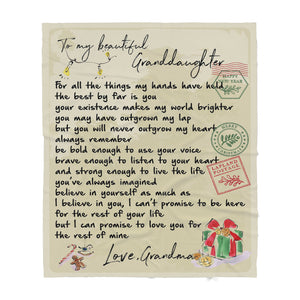 To my beautiful
Granddaughter
HAPPY
NEW YEAR
For all the things my hands have held
the best by far is you
your existence makes my world brighter
you may have outgrown my lap
but you will never outgrow my heart
always remember
be bold enough to use your voice
brave enough to listen to your heart
and strong enough to live the life
you've always imagined
believe in yourself as much as
I believe in you, I can't promise to be here
for the rest of your life
but I can promise to love you for
the rest of mine
LAPLAND
POSTAGE
Love, Grandma